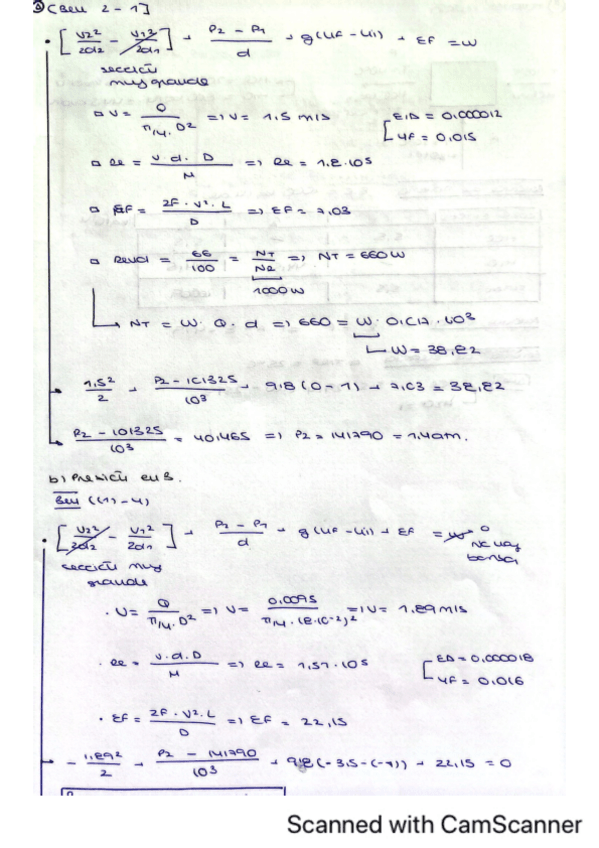 ③ (BEU 2-1]
· [ V2²/2α2 - V1²/2α1 ] + P2 - P1 / d + g(Uf - Ui) + EF = W
sección
muy grande
▫ V = Q / π/4 · D² => V = 1,5 m/s [ E/D = 0,000012
4F = 0,015
▫ Re = V · d · D / M => Re = 1,8 · 10⁵
▫ EF = 2F · V² · L / D => EF = 7,03
▫ Rend = 66/100 = NT/NR => NT = 660 W
1000 W
NT = W · Q · d => 660 = W · 0,017 · 10³
W = 38,82
1,5²/2 + P2 - 101325 / 10³ + 9,8 (0 - 1) + 7,03 = 38,82
P2 - 101325 / 10³ = 40,465 => P2 = 141790 = 1,4 atm.
b) Presión en B.
BEU ((1) - 4)
· [ V2²/2α2 - V1²/2α1 ] + P2 - P1 / d + g(Uf - Ui) + EF = W 0
sección muy
grande
No hay
bomba
· V = Q / π/4 · D² => V = 0,0095 / π/4 · (8·10⁻²)² => V = 1,89 m/s
· Re = V · d · D / M => Re = 1,51 · 10⁵ [ E/D = 0,000018
4F = 0,016
· EF = 2F · V² · L / D => EF = 22,15
- 1,89²/2 + P2 - 141790 / 10³ + 9,8 (-3,5 - (-1)) + 22,15 = 0
Scanned with CamScanner